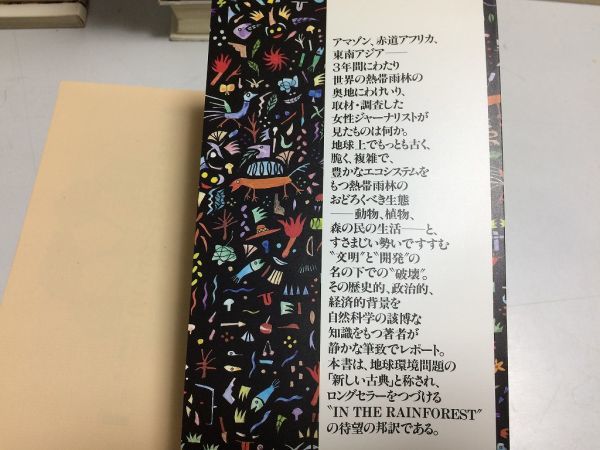 アマゾン、赤道アフリカ、
東南アジア――
3年間にわたり
世界の熱帯雨林の
奥地にわけいり、
取材・調査した
女性ジャーナリストが
見たものは何か。
地球上でもっとも古く、
脆く、複雑で、
豊かなエコシステムを
もつ熱帯雨林の
おどろくべき生態
――動物、植物、
森の民の生活――と、
すさまじい勢いですすむ
〝文明〞と〝開発〞の
名の下での〝破壊〞。
その歴史的、政治的、
経済的背景を
自然科学の該博な
知識をもつ著者が
静かな筆致でレポート。
本書は、地球環境問題の
「新しい古典」と称され、
ロングセラーをつづける
〝IN THE RAINFOREST〞
の待望の邦訳である。